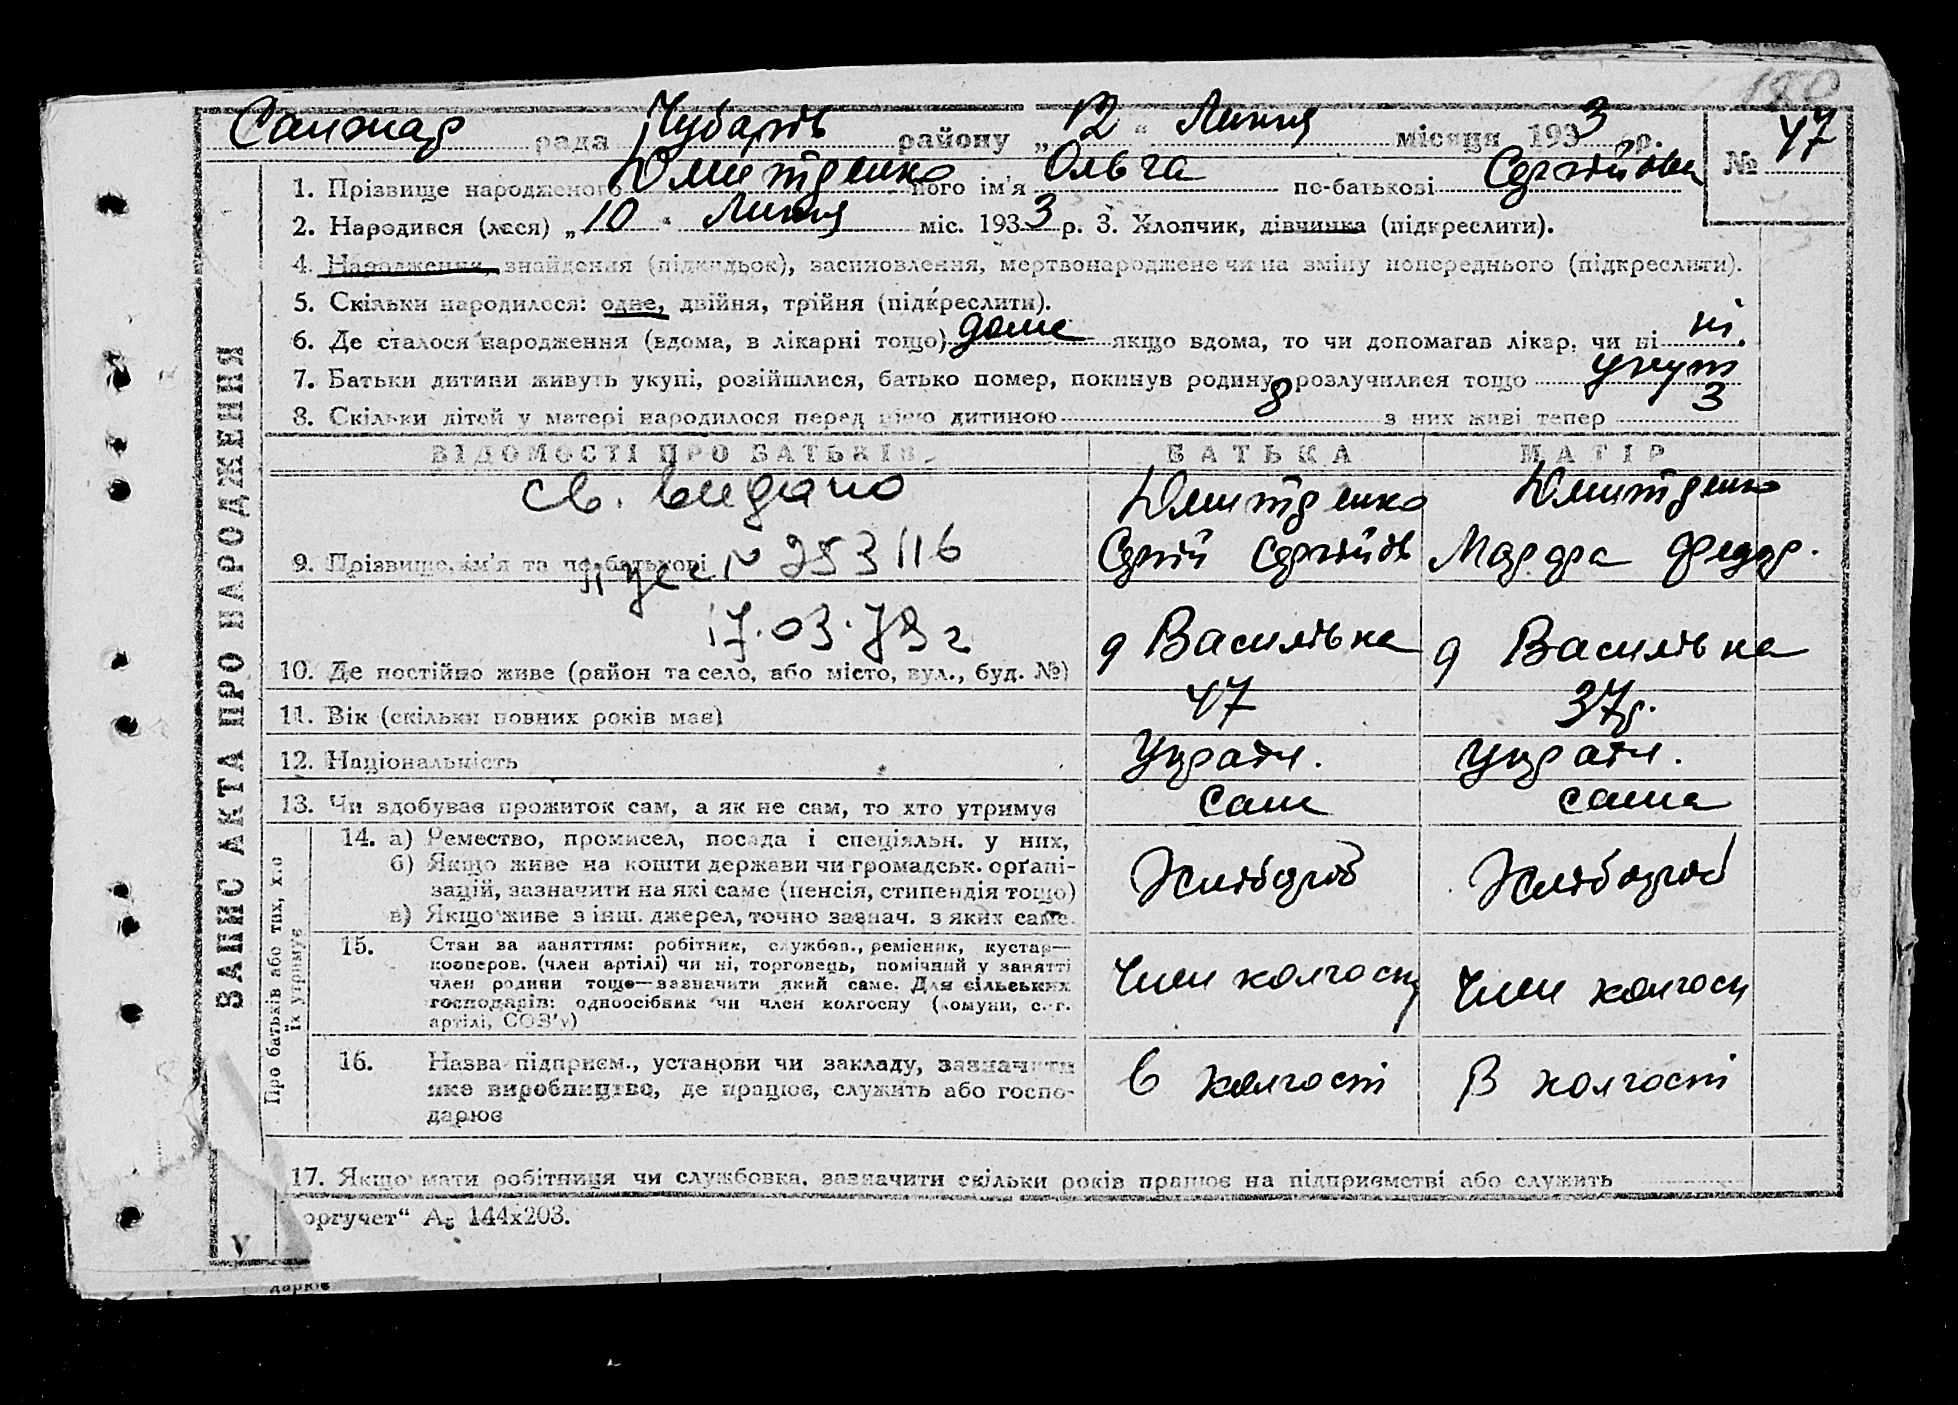 180
Санжар рада Чубарів району „12“ Липня місяця 1933 р. № 47
1. Прізвище народженого Дмитренко його ім'я Ольга по-батькові Сергіївна
2. Народився (лася) „10“ Липня міс. 1933 р. 3. Хлопчик, дівчинка (підкреслити).
4. Народження, знайдення (підкидьок), всиновлення, мертвонароджене чи на зміну попереднього (підкреслити).
5. Скільки народилося: одне, двійня, трійня (підкреслити).
6. Де сталося народження (вдома, в лікарні тощо) доме якщо вдома, то чи допомагав лікар, чи ні ні.
7. Батьки дитини живуть укупі, розійшлися, батько помер, покинув родину, розлучилися тощо укупі
8. Скільки дітей у матері народилося перед цією дитиною 8 з них живі тепер 3
ВІДОМОСТІ ПРО БАТЬКІВ БАТЬКА МАТІР
св. видано Дмитренко Дмитренко
9. Прізвище, ім'я та по-батькові № 253116 Сергій Сергійов Марфа Федор.
17.03.79 г
10. Де постійно живе (район та село, або місто, вул., буд. №) д Василівка д Василівка
11. Вік (скільки повних років має) 47 37р.
12. Національність Україн. Україн.
13. Чи здобуває прожиток сам, а як не сам, то хто утримує сам сама
14. а) Ремество, промисел, посада і спеціяльн. у них,
б) Якщо живе на кошти держави чи громадськ. орґані-
зацій, зазначити на які саме (пенсія, стипендія тощо) Хлібороб Хлібороб
в) Якщо живе з інш. джерел, точно зазнач. з яких саме.
15. Стан за заняттям: робітник, службов., ремісник, кустар—
кооперов. (член артілі) чи ні, торговець, помічний у занятті
член родини тощо—зазначити який саме. Для сільських Член колгоспу Член колгосп
господарів: одноосібник чи член колгоспу (комуни, с.-г.
артілі, СОЗ'у)
16. Назва підприєм., установи чи закладу, зазначити
яке виробництво, де працює, служить або госпо- в колгоспі В колгоспі
дарює
17. Якщо мати робітниця чи службовка, зазначити скільки років працює на підприємстві або служить
оргучет“ А₅ 144х203.
V
дарює
ЗАПИС АКТА ПРО НАРОДЖЕННЯ
Про батьків або тих, хто
їх утримує